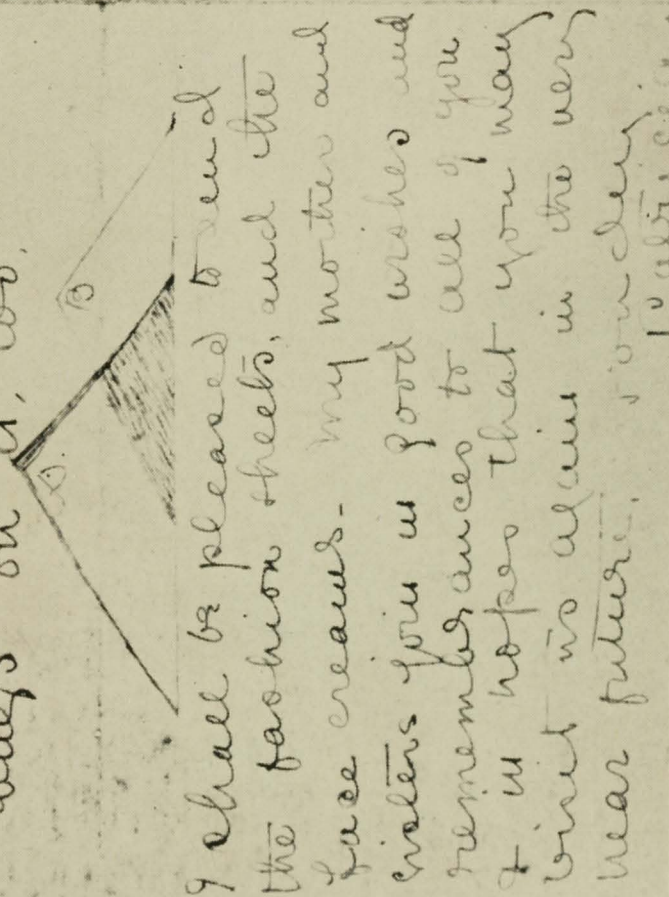 on it, too.
B
D.
I shall be pleased to send
the fashion sheets, and the
face creams. My mother and
sisters join in good wishes and
remembrances to all of you
& in hopes that you may
visit us again in the very
near future.